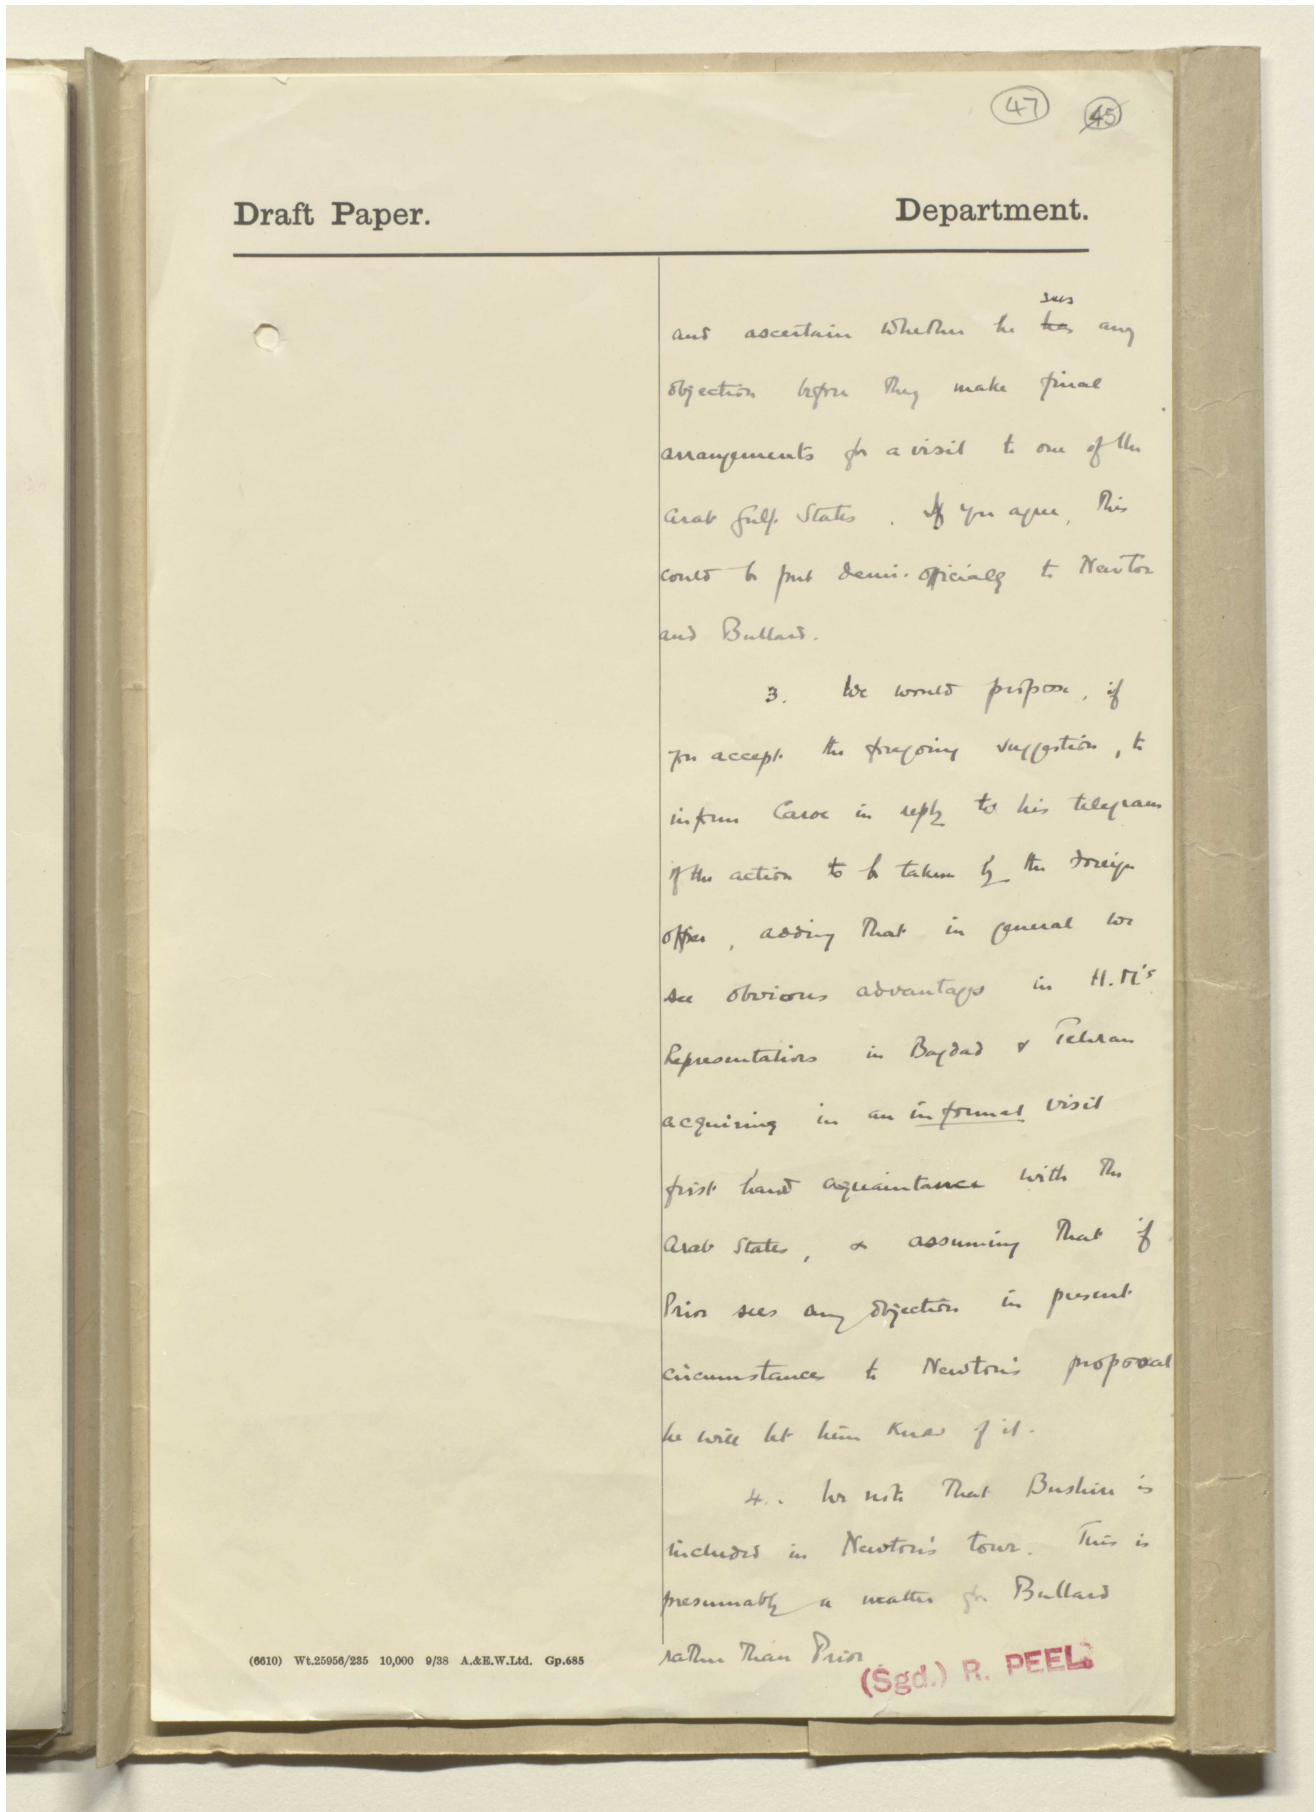 47 45
Draft Paper. Department.
sees
and ascertain whether he has any
objection before they make final
arrangements for a visit to one of the
Arab Gulf States. If you agree, this
could be put demi-officially to Newton
and Bullard.
3. We would propose, if
you accept the foregoing suggestion, to
inform Caroe in reply to his telegram
of the action to be taken by the Foreign
Office, adding that in general we
see obvious advantages in H.M's
Representatives in Bagdad & Tehran
acquiring in an informal visit
first hand acquaintance with the
Arab States, & assuming that if
Prior sees any objection in present
circumstances to Newton's proposal
he will let him know of it.
4. We note that Bushire is
included in Newton's tour. This is
presumably a matter for Bullard
rather than Prior
(Sgd.) R. PEEL.
(6610) Wt.25956/235 10,000 9/38 A.&E.W.Ltd. Gp.685